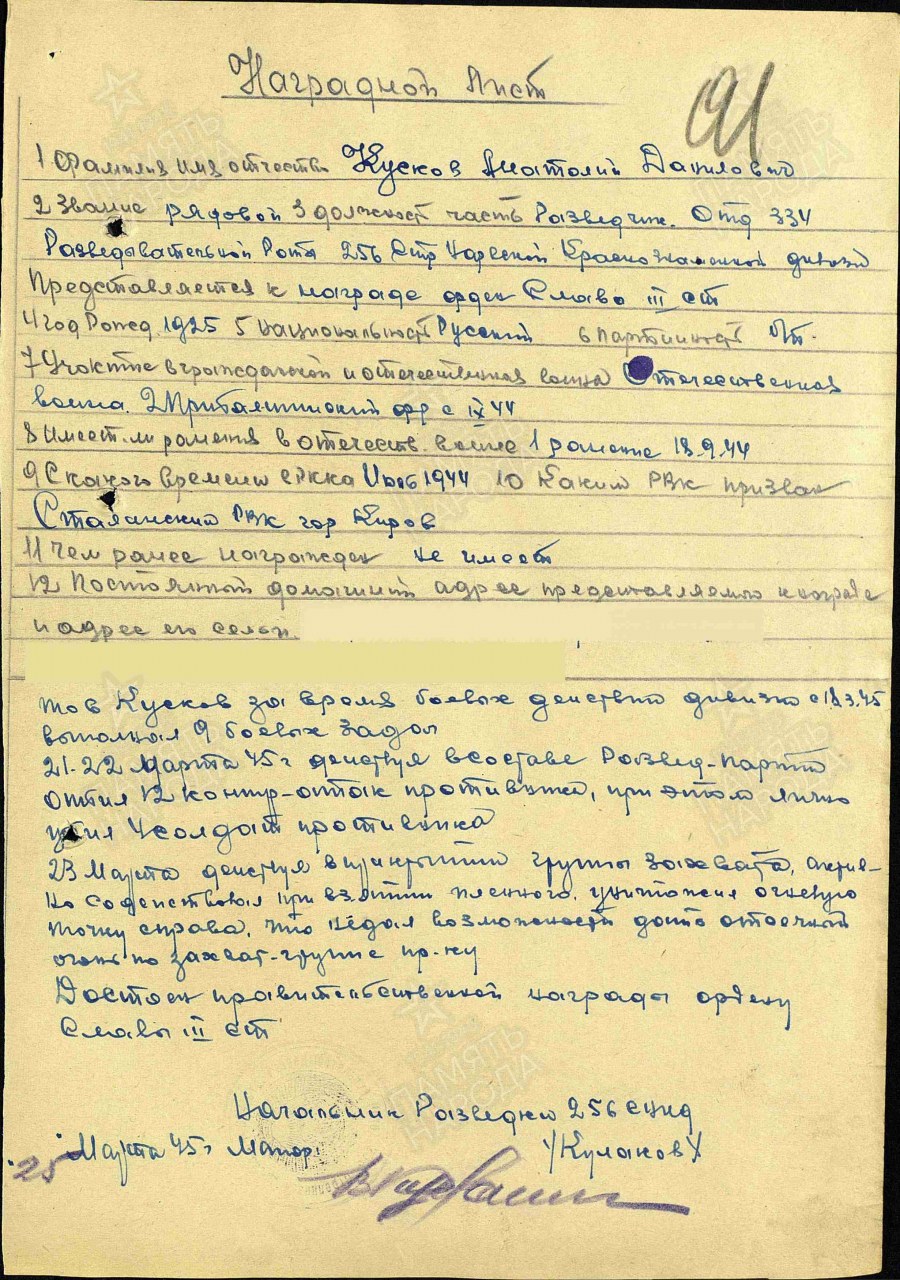 Наградной Лист
91
1 Фамилия имя отчество Кусков Анатолий Данилович
2 Звание рядовой 3 должность часть Разведчик. Отд 334
Разведывательной Рота 256 Стр Нарвской Краснознаменной дивизи
Представляется к награде орден Славы III ст
4 год Рожд. 1925 5 национальность Русский 6 партийность б/п.
7 Участие в гражданской и отечественная война Отечественная
война. 2 Прибалтийский фр с IX 44
8 Имеет ли ранения в отечеств. войне 1 ранение 18.9.44
9 С какого времени в РККА 1944 10 Каким РВК призван
Сталинский РВК гор Киров
11 Чем ранее награжден не имеет
12 Постоянный домашний адрес представляемого к награде
и адрес его семьи
тов Кусков за время боевых действий дивизи с 18.3.45
выполнял 9 боевых задач
21-22 Марта 45 г действуя в составе Развед-партии
отбил 12 контр-атак противника, при этом лично
убил 4 солдат противника
23 Марта действуя в прикрытии группы захвата, актив-
но содействовал при взятии пленного. уничтожил огневую
точку справа, что недал возможности дать ответный
огонь по захват-группе пр-ку
Достоен правительственной награды ордену
Славы III ст
Начальник Разведки 256 сднд
"25" Марта 45 г Майор /Кулаков/
ПАМЯТЬ НАРОДА